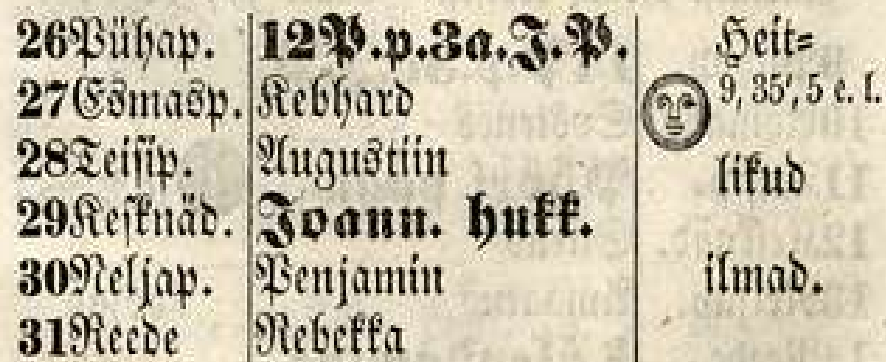 26 Pühap. 12 P. p. 3a. J. P. Heit=
27 Esmasp. Kebhard 9, 35', 5 e. l.
28 Teisip. Augustiin likud
29 Kesknäd. Joann. hukk.
30 Neljap. Penjamin ilmad.
31 Reede Rebekka